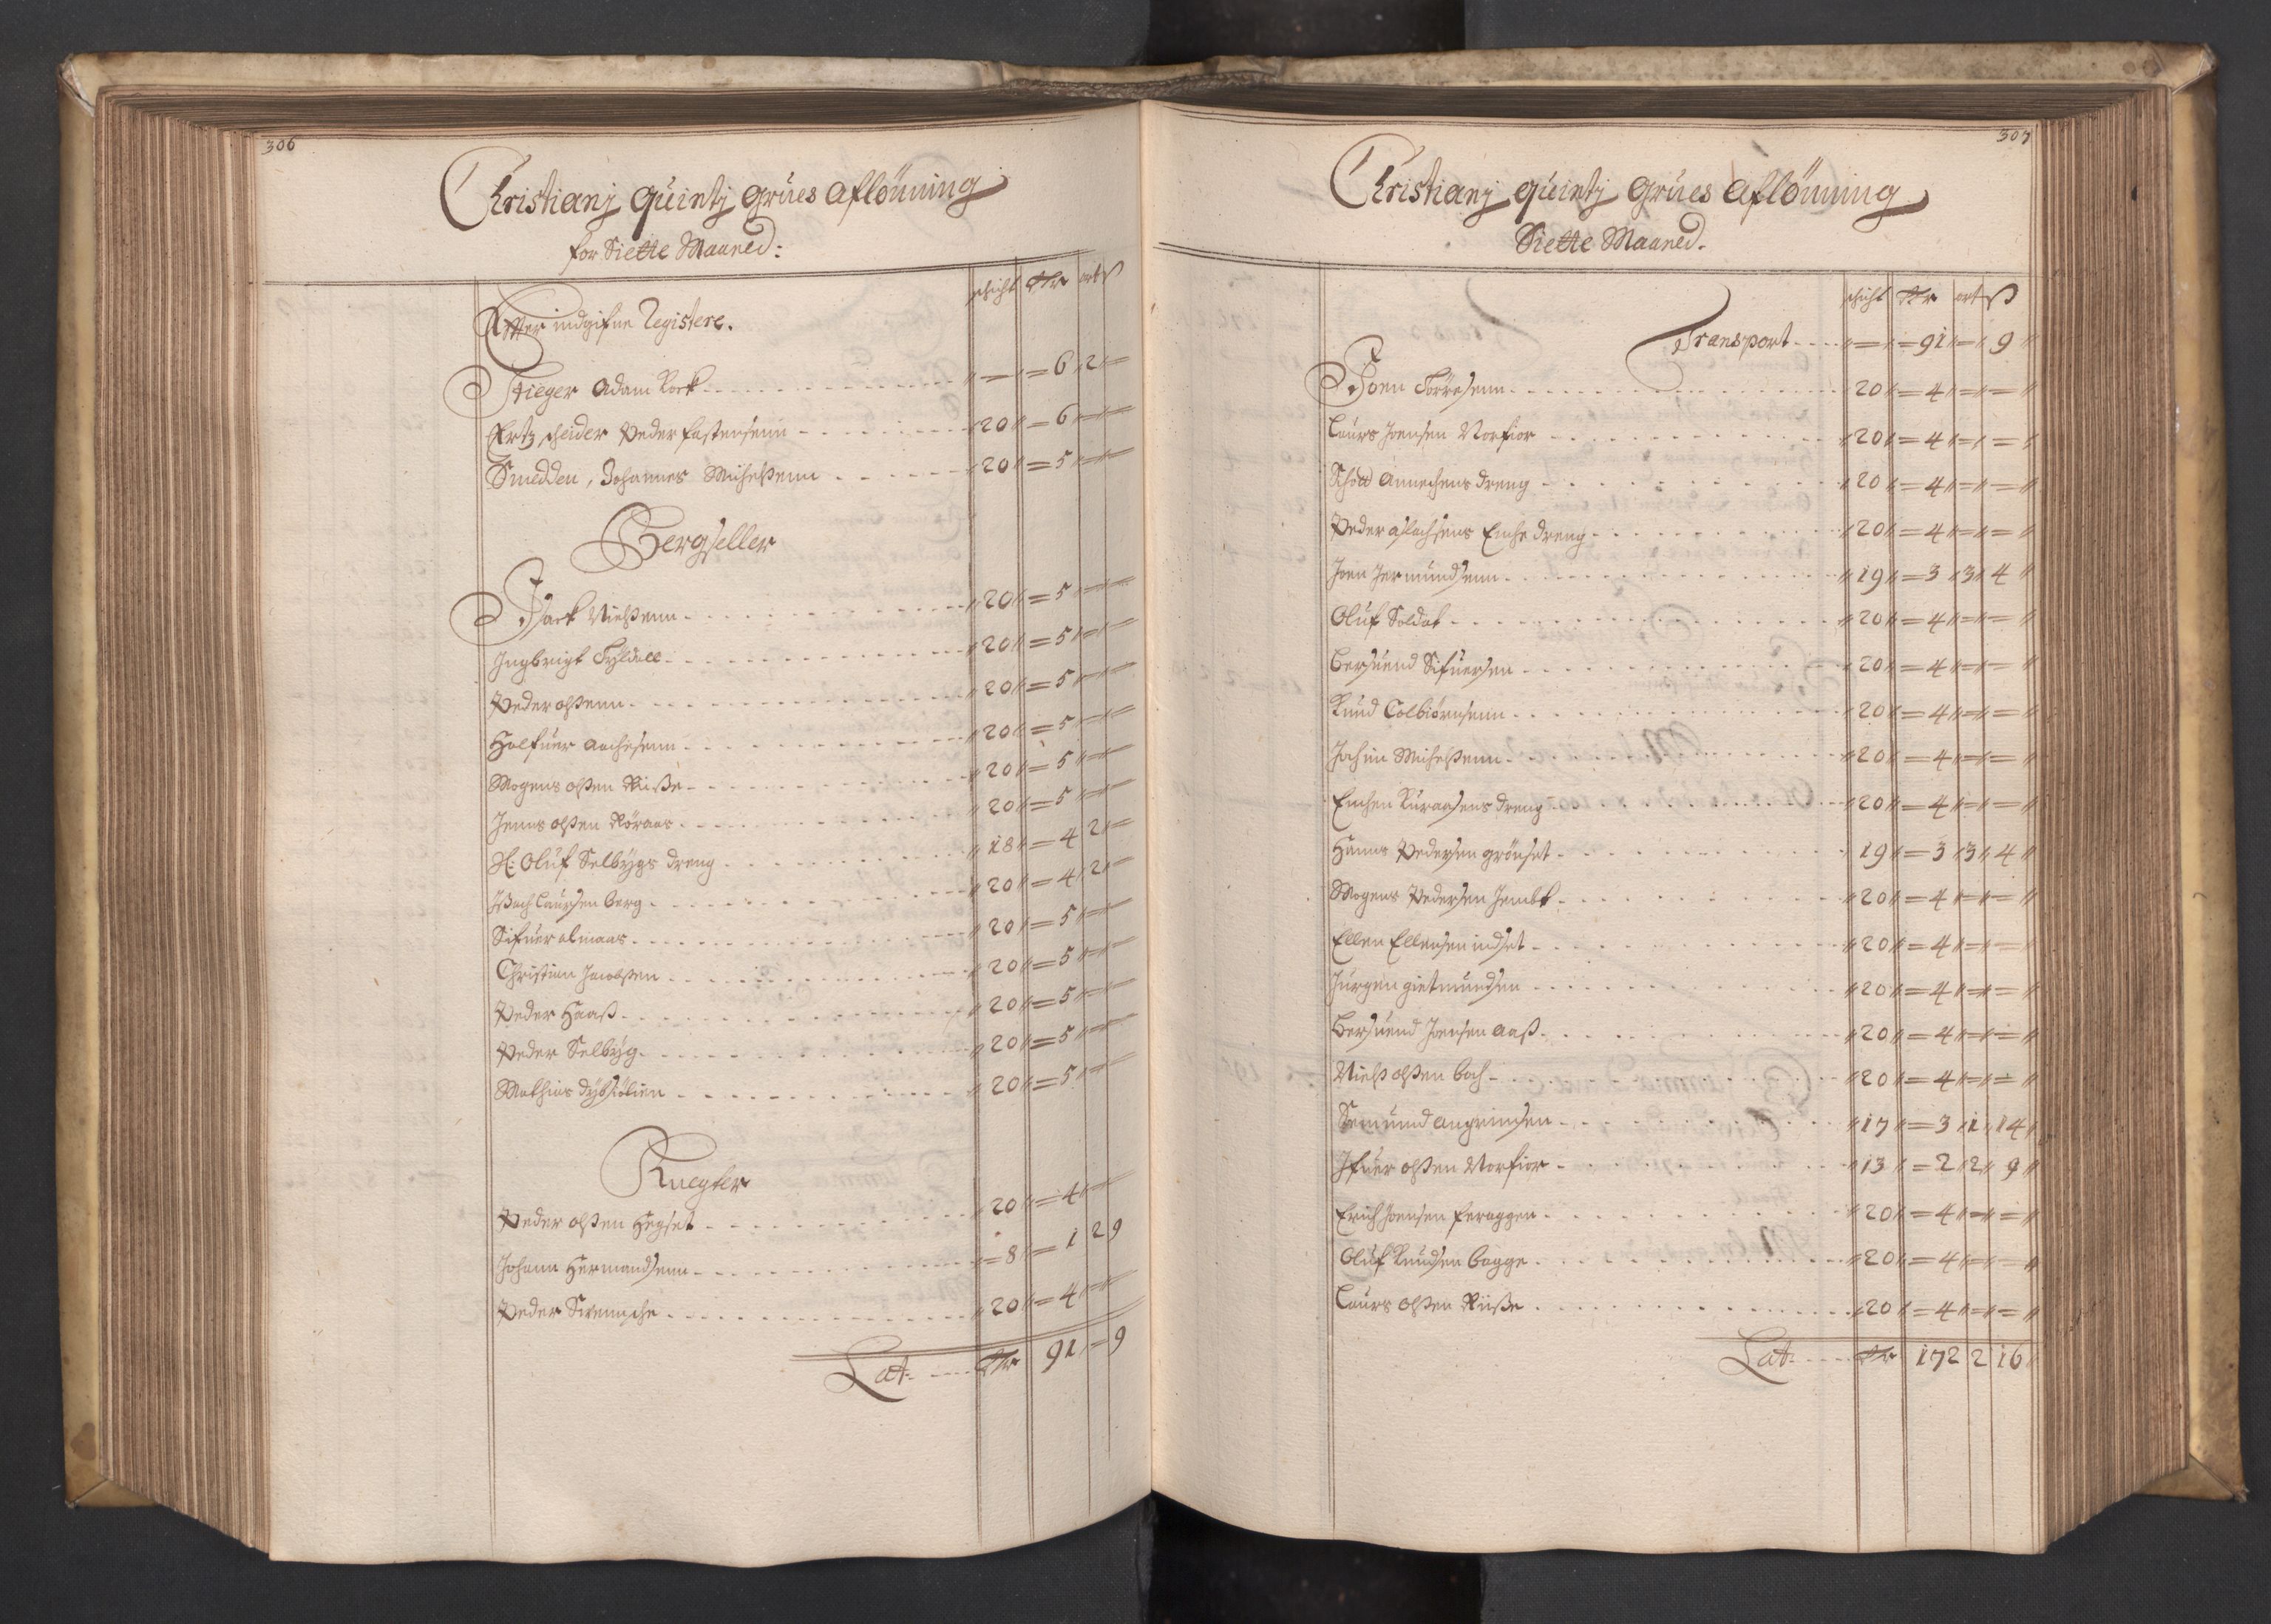 306
Christianj Quintj Grues Aflönning
for Siette Maaned:
schicht Rdr ort ß
Effter indgifne Registere.
Stieger Adam Rock - - - " — " = 6 " 2 " =
Ertz scheider Peder Fastensenn - - - " 20 " = 6 " = " =
Smedden, Johannes Michelßenn - - - " 20 " = 5 " = " =
Bergseller
Isack Nielßenn - - - " 20 " = 5 " = " =
Ingbrigt Tyldall - - - " 20 " = 5 " = " =
Peder olßenn - - - " 20 " = 5 " = " =
Halfuer Aachesenn - - - " 20 " = 5 " = " =
Mogens olßen Riiße - - - " 20 " = 5 " = " =
Jenns olßen Röraas - - - " 20 " = 5 " = " =
H: Oluf Selbygs dreng - - - " 18 " = 4 " 2 " =
Isach Laursen berg - - - " 20 " = 4 " 2 " =
Sifuer almaas - - - " 20 " = 5 " = " =
Christian Jacobßen - - - " 20 " = 5 " = " =
Peder Haaß - - - " 20 " = 5 " = " =
Peder Selbyg - - - " 20 " = 5 " = " =
Mathias - - - " 20 " = 5 " = " =
Knegter
Peder olßen Hegset - - - " 20 " = 4 " = " =
Johann Hermandsenn - - - " = 8 " = 1 2 9
Peder - - - " 20 " = 4 " = " =
Lat: - - - Rdr 91 " = 9
307
Christianj Quintj Grues Aflönning
Siette Maaned.
schicht Rdr ort ß
Transport - - - " — " = 91 " = " 9 "
Joen Torresenn - - - " 20 " = 4 " = " = "
Laurs Joensen Norfior - - - " 20 " = 4 " = " = "
Annechens dreng - - - " 20 " = 4 " = " = "
Peder aslachsens Enche dreng - - - " 20 " = 4 " = " = "
Joen Jermundsenn - - - " 19 " = 3 " 3 " 4 "
Oluf Soldat - - - " 20 " = 4 " = " = "
Bersuend Sifuersen - - - " 20 " = 4 " = " = "
Knud Tolbiörnsenn - - - " 20 " = 4 " = " = "
Jochim Michelßenn - - - " 20 " = 4 " = " = "
Enchen Kuraasens dreng - - - " 20 " = 4 " = " = "
Hanns Pedersen grönset - - - 19 " = 3 " 3 " 4 "
Mogens Pedersen Jembt - - - " 20 " = 4 " = " = "
Ellen Ellensen indset - - - " 20 " = 4 " = " = "
Jürgen gietmundsen - - - " 20 " = 4 " = " = "
Bersuend Joensen Aaß - - - " 20 " = 4 " = " = "
Nielß olßen bach - - - " 20 " = 4 " = " = "
Semund Angrimsen - - - " 17 " = 3 " 1 " 14 "
Ifuer olßen Norfior - - - " 13 " = 2 " 2 " 9 "
Erich Joensen feraggen - - - " 20 " = 4 " = " = "
Oluf Knudsen bagge - - - " 20 " = 4 " = " = "
Laurs olßen Riiße - - - " 20 " = 4 " = " = "
Lat: - - - Rdr 172 2 16 "